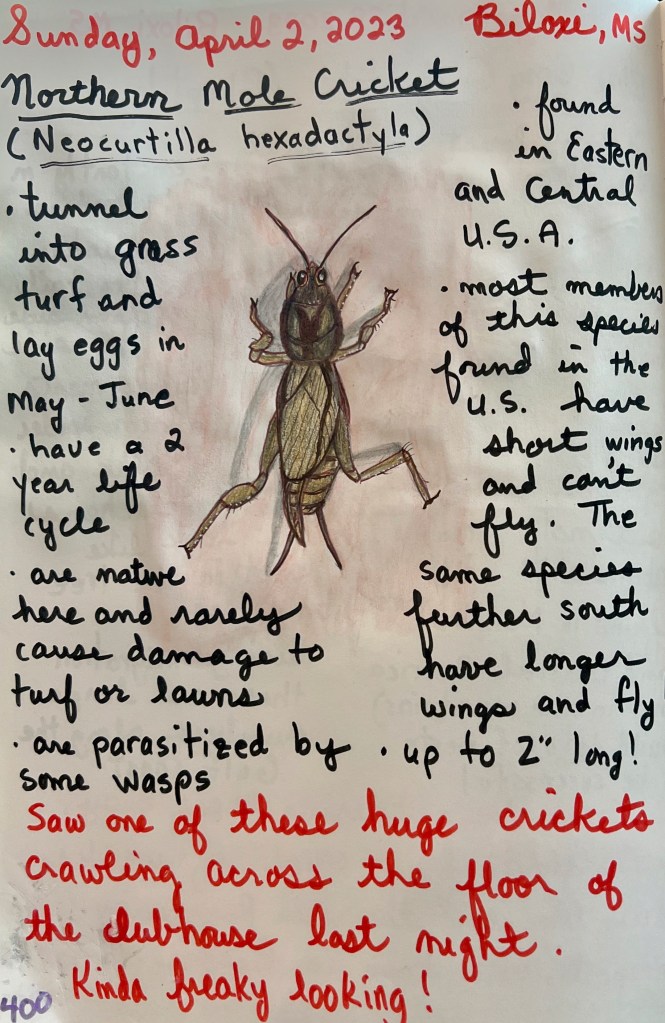 Sunday, April 2, 2023 Biloxi, Ms
Northern Mole Cricket
(Neocurtilla hexadactyla)
• tunnel
into grass
turf and
lay eggs in
May - June
• have a 2
year life
cycle
• are native
here and rarely
cause damage to
turf or lawns
• are parasitized by
some wasps
• found
in Eastern
and Central
U.S.A.
• most members
of this species
found in the
U.S. have
short wings
and can't
fly. The
same species
further south
have longer
wings and fly
• up to 2" long!
Saw one of these huge crickets
crawling across the floor of
the clubhouse last night.
Kinda freaky looking!
400